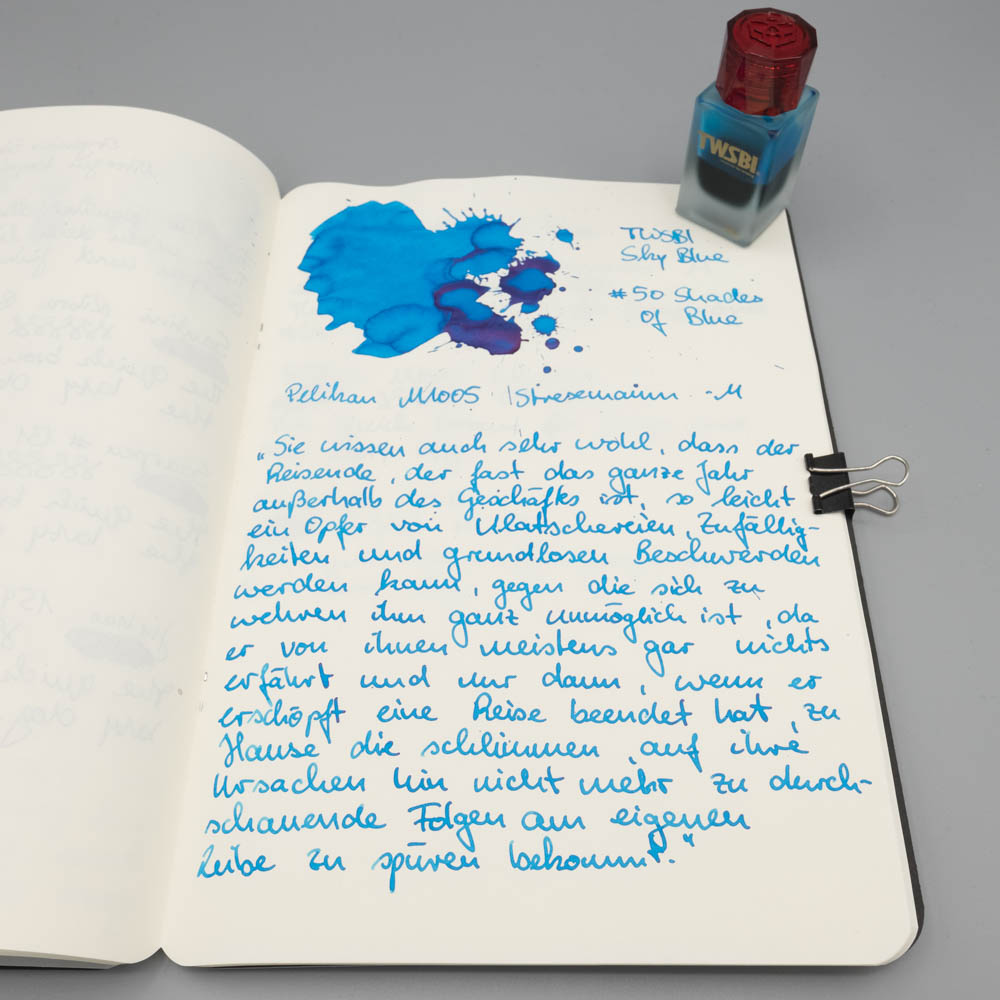 TWSBI
TWSBI
Sky Blue
#50 Shades
Of Blue
Pelikan M1005 |Stresemann -M
„Sie wissen auch sehr wohl, dass der
Reisende, der fast das ganze Jahr
außerhalb des Geschäftes ist, so leicht
ein Opfer von Klatschereien, Zufällig-
keiten und grundlosen Beschwerden
werden kann, gegen die sich zu
wehren ihm ganz unmöglich ist, da
er von ihnen meistens gar nichts
erfährt und nur dann, wenn er
erschöpft eine Reise beendet hat, zu
Hause die schlimmen, auf ihre
Ursachen hin nicht mehr zu durch-
schauende Folgen am eigenen
Leibe zu spüren bekommt."